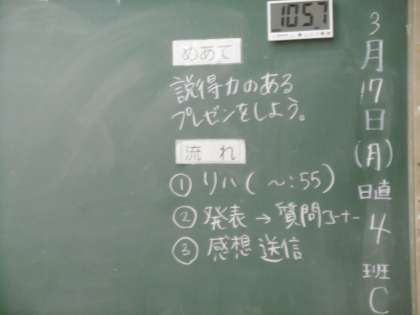 3月17日(月)日直4班C
10:57
めあて
説得力のある
プレゼンをしよう。
流れ
① リハ(～:55)
② 発表→質問コーナー
③ 感想送信